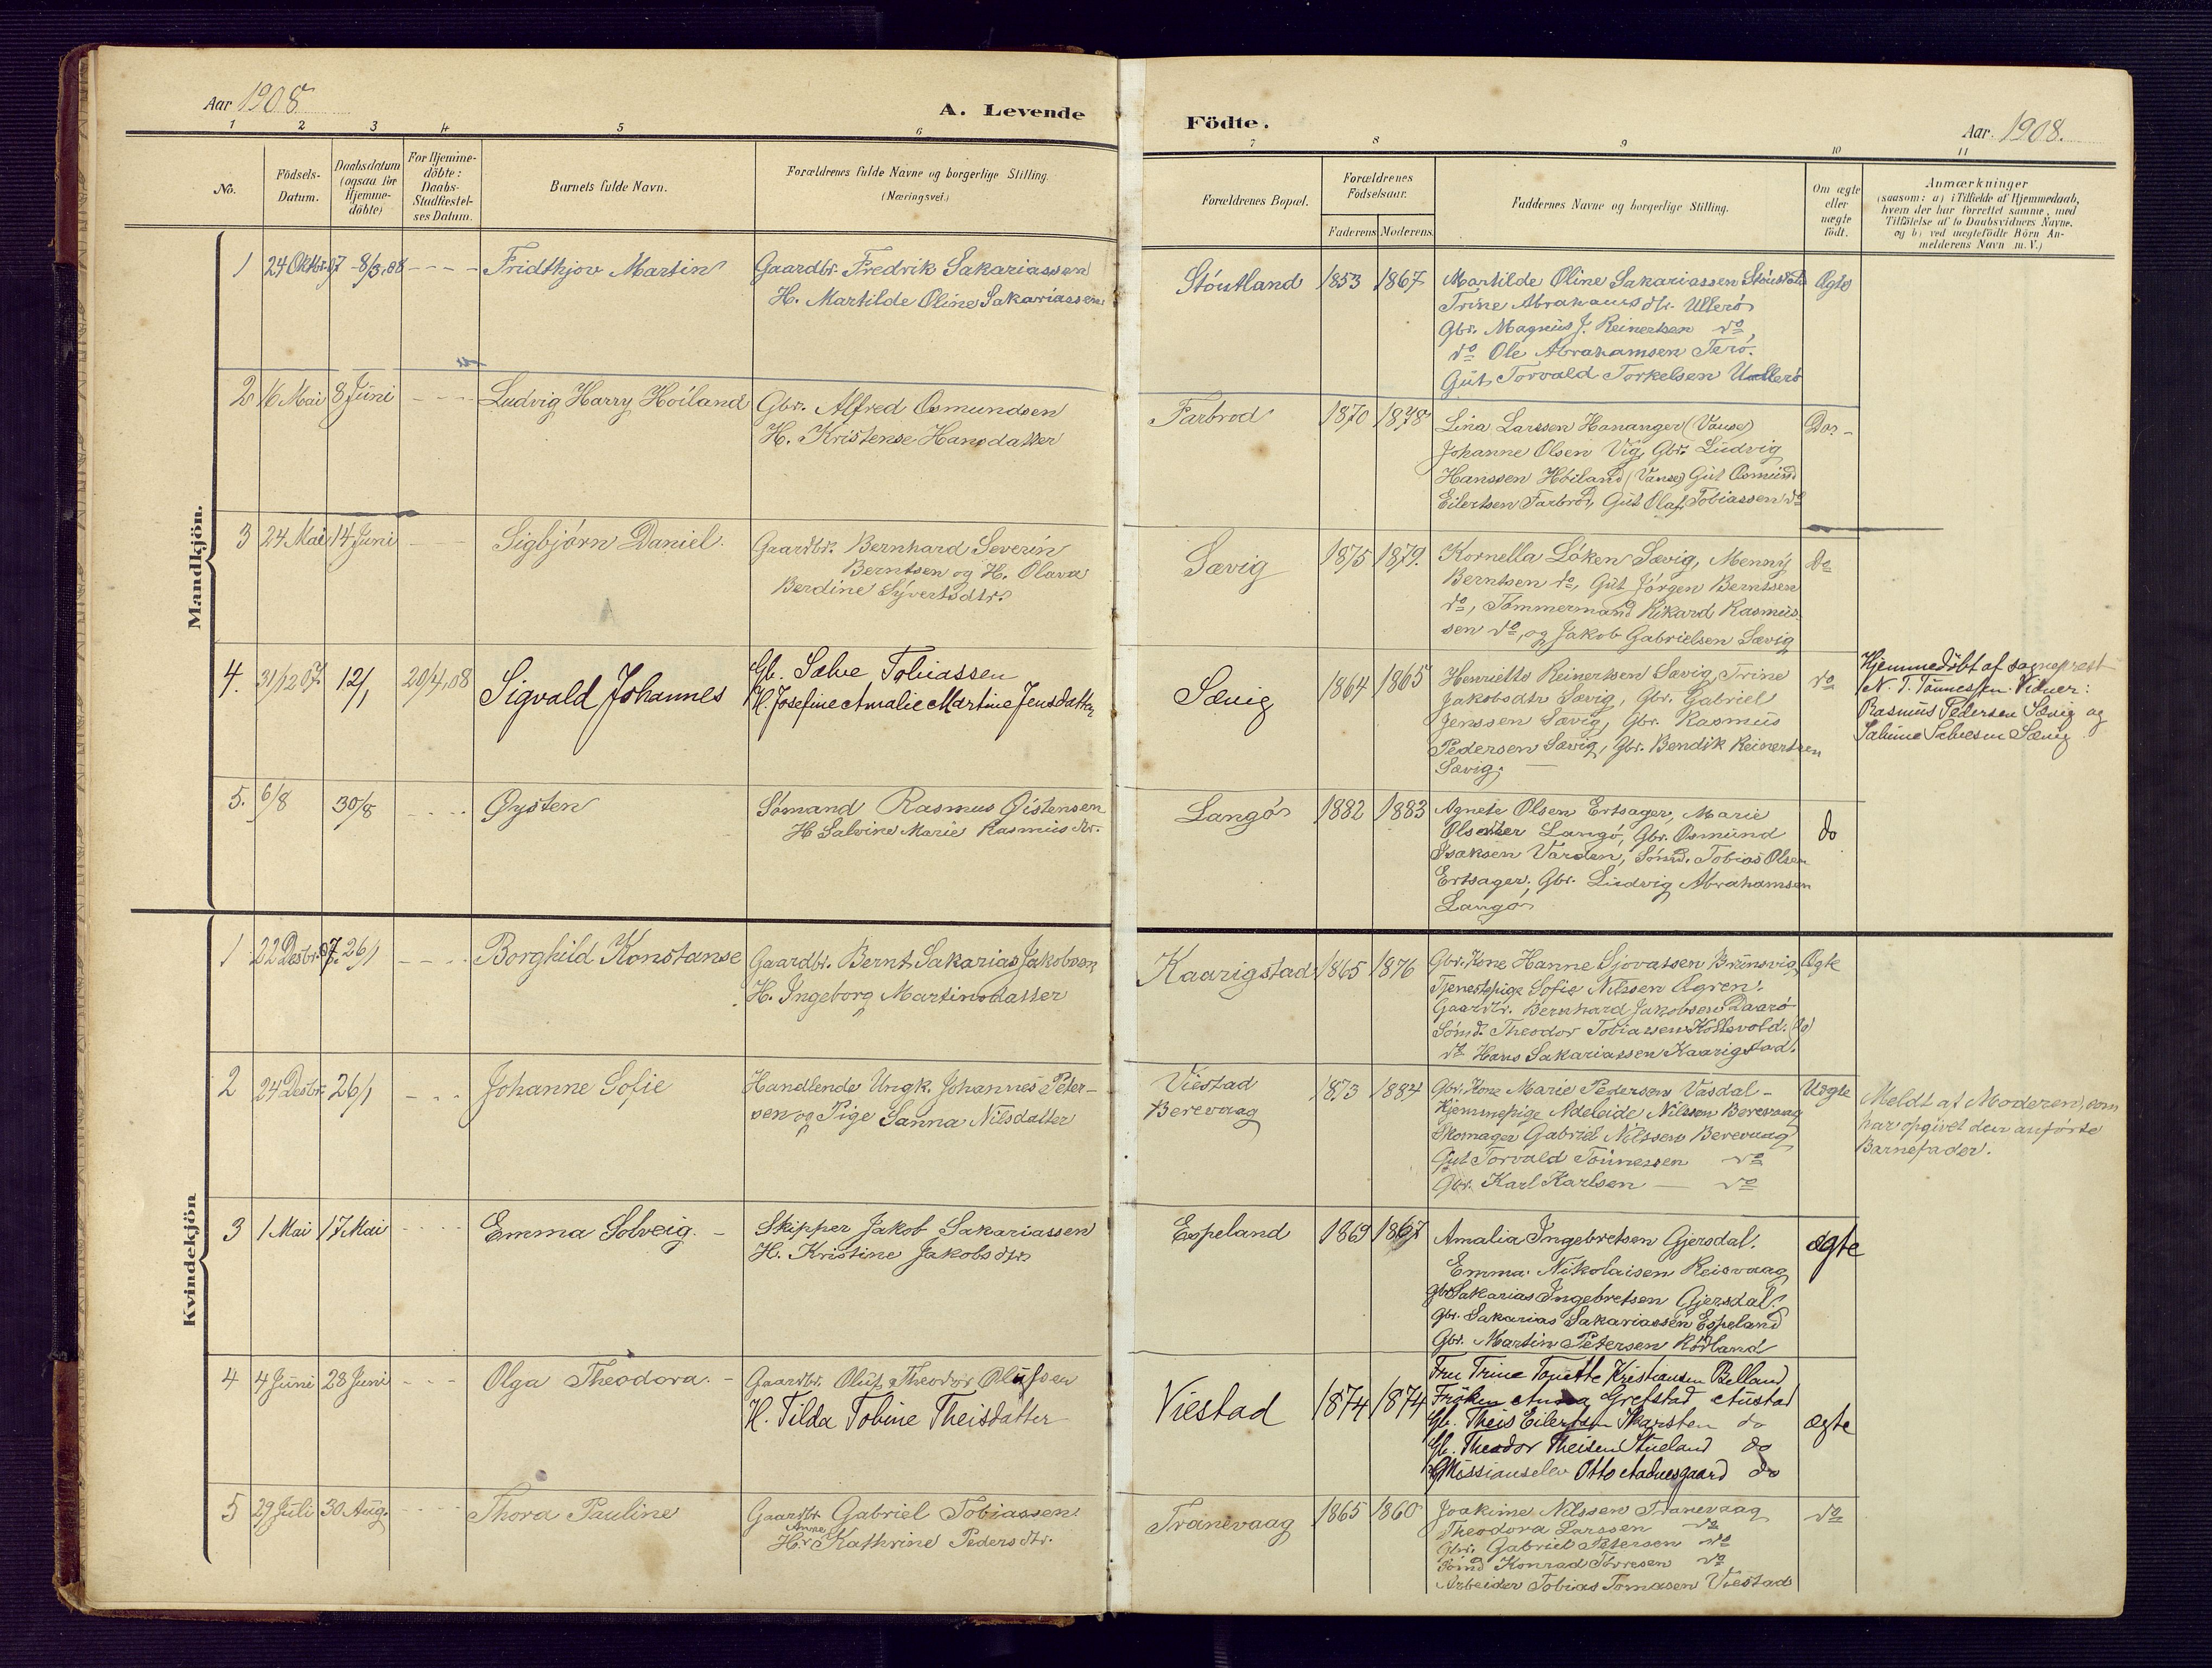 Aar 1908
A. Levende
Födte.
Aar. 1908.
1 2 3 4 5 6 7 8 9 10 11
No.
Födsels-Datum.
Daabsdatum (ogsaa for Hjemme-döbte)
For Hjemme-döbte: Daabs-Stadfestel-ses Datum.
Barnets fulde Navn.
Forældrenes fulde Navne og borgerlige Stilling.
(Næringsvei.)
Forældrenes Bopæl.
Forældrenes Födselsaar.
Faderens Moderens.
Faddernes Navne og borgerlige Stilling.
Om ægte eller uægte födt.
Anmærkninger
(saasom: a) i Tilfælde af Hjemmedaab,
hvem der har forrettet samme, med
Tilföielse af to Daabsvidners Navne,
og b) ved uægtefödte Börn An-
melderens Navn m. V.)
Mandkjön.
1 24 Oktbr. 07 8/3.08 - - - - Fridthjov Martin
Gaardbr. Fredrik Sakariassen
H. Martilde Oline Sakariassen
Stóutland 1853 1867
Martilde Oline Sakariassen
Trine Abrahamsdtr. Ullerö
Gbr. Magnus J. Reinertsen do,
do Ole Abrahamsen Terö.
Gut Torvald Torkelsen Ullerö
Ægte
2 16 Mai 8 Juni - - - Ludvig Harry Höiland
Gbr. Alfred Osmundsen
H. Kristense Hansdatter
Farbrod 1870 1878
Lina Larssen Hananger (Vanse)
Johanne Olsen Vig, Gbr. Ludvig
Hanssen Höiland (Vanse) Gut Osmund
Eilertsen Farbrod, Gut Olaf Tobiassen do
Do. -
3 24 Mai 14 Juni - - - Sigbjørn Daniel.
Gaardbr. Bernhard Severin
Berntsen og H. Olava
Berdine Syvertsdtr.
Sævig 1875 1879.
Kornella Löken Sævig, Menny
Berntsen do, Gut Jörgen Berntsen
do, Tömmermand Rikard Rasmus
sen do, og Jakob Gabrielsen Sævig
Do
4. 31/12 07 12/1 20/4.08 Sigvald Johannes
Gb. Salve Tobiassen
H. Josefine Amalie Martine Jensdatter
Sævig 1864 1865
Henriette Reinertsen Sævig, Trine
Jakobsdtr Sævig, Gbr. Gabriel
Jenssen Sævig, Gbr. Rasmus
Pedersen Sævig, Gbr. Bendik Reinertsen
Sævig. -
do
Hjemmedöbt af sogneprest
N. T. Tönnessen. Vidner:
Rasmus Pedersen Sævig og
Saline Salvesen Sævig
5. 6/8 30/8 - - - - Øysten
Sömand Rasmus Öistensen
H Salvine Marie Rasmusdtr.
Langö 1882 1883
Agnete Olsen Ertsager, Marie
Olsdtter Langö, Gbr. Osmund
Isaksen Varden, Sömd. Tobias Olsen
Ertsager. Gbr. Ludvig Abrahamsen
Langö
do
Kvindekjön
1 22 Desbr. 07. 26/1 - - - - Borghild Konstanse
Gaardbr. Bernt Sakarias Jakobsen
H. Ingeborg Martinsdatter
Kaarigstad 1865 1876
Gbr. Kone Hanne Sjovassen Brunsvig
Tjenestepige Sofie Nilssen Agren.
Gaardbr. Bernhard Jakobsen Daarö
Sömd. Theodor Tobiassen
do Hans Sakariassen Kaarigstad.
Ægte
2 24 Desbr. 26/1 - - - Johanne Sofie
Handlende Ungk. Johannes Peter-
sen og Pige Sanna Nilsdatter
Viestad
Berevaag
1873 1884
Gbr. Kone Marie Pedersen Vasdal -
Hjemmepige Adelaide Nilssen Berevaag
Skomager Gabriel Nilssen Berevaag
Gut Torvald Tönnessen do
Gbr. Karl Karlsen - do
Uægte
Meldt af Moderen, som
har opgivet den anförte
Barnefader.
3 1 Mai 17 Mai - - - - Emma Solveig. -
Skipper Jakob Sakariassen
H. Kristine Jakobsdtr
Espeland 1869 1867
Amalia Ingebretsen Gjersdal.
Emma. Nikolaisen Reisvaag
Gbr Sakarias Ingebretsen Gjersdal.
Gbr. Sakarias Sakariassen Espeland
Gbr. Martin Petersen Rörland
ægte
4 4 Juni 28 Juni - - - Olga Theodora. -
Gaardbr. Oluf Theodor Olufsen
H. Tilda Tobine Theisdatter
Viestad 1874 1874
Fru Trine Tonette Kristiansen Belland
Fröken Anna Grefstad Austad
Gb. Theis Eilertsen Skarstein do
Gb. Theodor Theisen Stueland do
Missionselev Otto Aadnesgaard do
ægte
5 29 Juli 30 Aug. - - - - Thora Pauline
Gaardbr Gabriel Tobiassen
Anne
H. Kathrine Pedersdtr.
Tranevaag 1865 1860
Joakime Nilssen Tranevaag
Theodora Larssen do
Gbr. Gabriel Petersen do
Sömd Konrad Torresen do
Arbeider Tobias Tomasen Viestad
do